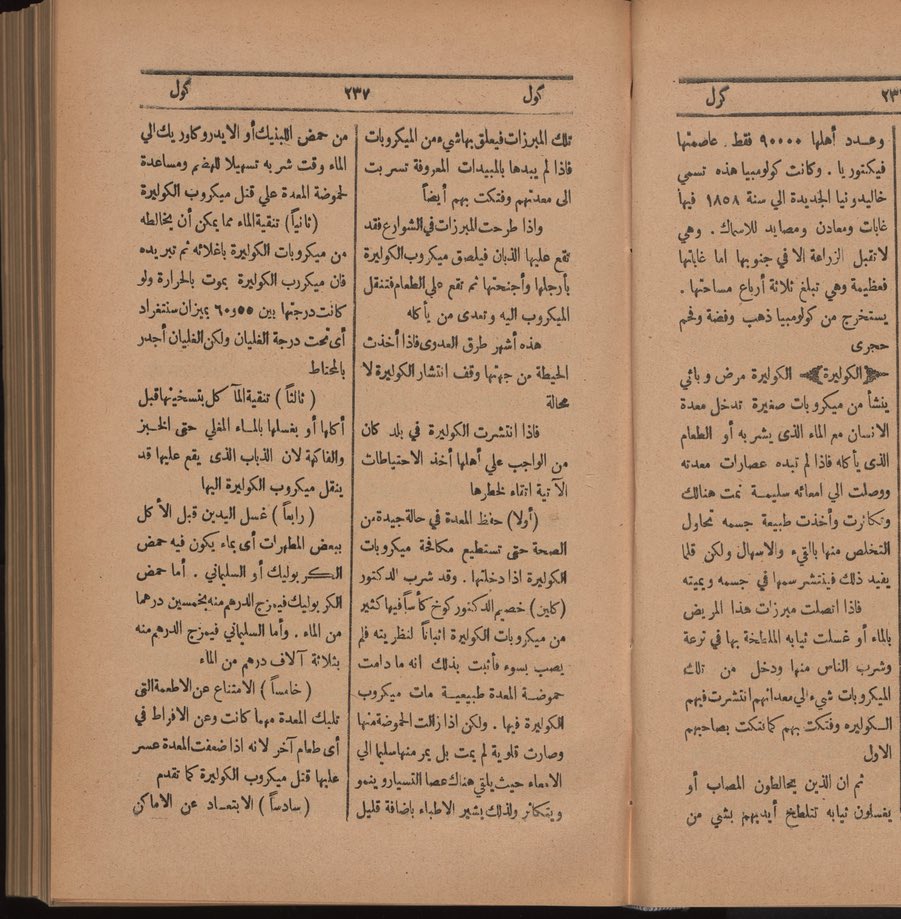 كرل
وعـدد أهلها ٩٠٠٠٠ فقط . عاصمتها
فيكتوريا . وكانت كولومبيا هذه تسمي
خاليدونيا الجديدة الي سنة ١٨٥٨ فيها
غابات ومعادن ومصايد للاسماك . وهي
لا تقبل الزراعة الا في جنوبها اما غاباتها
فعظيمة وهي تبلغ ثلاثة أرباع مساحتها .
يستخرج من كولومبيا ذهب وفضة وفحم
حجرى
﴿الكوليرة﴾ الكوليرة مرض وبائي
ينشأ من ميكروبات صغيرة تدخل معدة
الانسان مع الماء الذى يشربه أو الطعام
الذى يأكله فاذا لم تبده عصارات معدته
ووصلت الي امعائه سليمـة نمت هنالك
وتكاثرت وأخذت طبيعة جسمه تحاول
التخلص منها بالقيء والاسهال ولكن قلما
يفيد ذلك فينتشر سمها في جسمه ويميته
فاذا اتصلت مبرزات هذا المريض
بالماء أو غسلت ثيابه الملتاخة بها في ترعة
وشرب الناس منها ودخل من تلك
الميكروبات شيء الي معداتهم انتشرت فيهم
الـكوليره وفتكت بهم كما فتكت بصاحبهم
الاول
ثم ان الذين يخالطون المصاب أو
يغسلون ثيابه تتلطخ أيديهم بشي من
كول
٢٣٧
كول
تلك المبرزات فيعلق بها شيء من الميكروبات
فاذا لم يبدها بالمبيدات المعروفة تسربت
الى معدتهم وفتكت بهم أيضاً
واذا طرحت المبرزات في الشوارع فقد
تقع عليها الذبان فيلصق ميكروب الكوليرة
بأرجلها وأجنحتها ثم تقع علي الطعام فتنقل
الميكروب اليه وتعدى من يأكله
هذه أشهر طرق العدوى فاذا أخذت
الحيطة من جهتها وقف انتشار الكوليرة لا
محالة
فاذا انتشرت الكوليرة في بلد كان
من الواجب علي أهلها أخذ الاحتياطات
الآتية اتقاء لخطرها
(أولا) حفظ المعدة في حالة جيدة من
الصحة حتى تستطيع مكافحة ميكروبات
الكوليرة اذا دخلتها . وقد شرب الدكتور
(كلين) خصيم الدكتور كوخ كأساً فيها كثير
من ميكروبات الكوليرة اثباتاً لنظريته فلم
يصب بسوء فأثبت بذلك انه ما دامت
حموضـة المعدة طبيعيـة مات ميكروب
الكوليرة فيها . ولكن اذا زالت الحموضة منها
وصارت قلوية لم يمت بل يمر منها سليما الي
الامعاء حيث يلتي هناك عصا التسيار وينمو
ويتكاثر ولذلك يشير الاطباء باضافة قليل
من حمض اللبنيك أو الايدروكلوريك الي
الماء وقت شربه تسهيلا للهضم ومساعدة
لحموضة المعدة علي قتل ميكروب الكوليرة
(ثانياً) تنقية الماء مما يمكن أن يخالطه
من ميكروبات الكوليرة باغلائه ثم تبريده
فان ميكروب الكوليرة يموت بالحرارة ولو
كانت درجتها بين ٥٥ و ٦٠ بميزان سنتغراد
أى تحت درجة الغليان ولكن الغليان أجدر
بالمحتاط
( ثالثاً ) تنقية المآكل بتسخينها قبل
أكلها أو بغسلها بالمـاء المغلي حتى الخـبز
والفاكهة لان الذباب الذى يقع عليها قد
ينقل ميكروب الكوليرة اليها
( رابعاً ) غسل اليدين قبل الأكل
ببعض المطهرات أى بماء يكون فيه حمض
الـكربوليك أو السليماني . أما حمض
الكربوليك فيمزج الدرهم منه بخمسين درهما
من الماء . وأما السليماني فيمزج الدرهم منه
بثلاثة آلاف درهم من الماء
( خامساً ) الامتناع عن الاطعمة التى
تلبك المعدة مهما كانت وعن الافراط في
أى طعام آخر لانه اذا ضعفت المعدة عسر
عليها قتل ميكروب الكوليرة كما تقدم
( سادساً ) الابتعـاد عن الاماكن